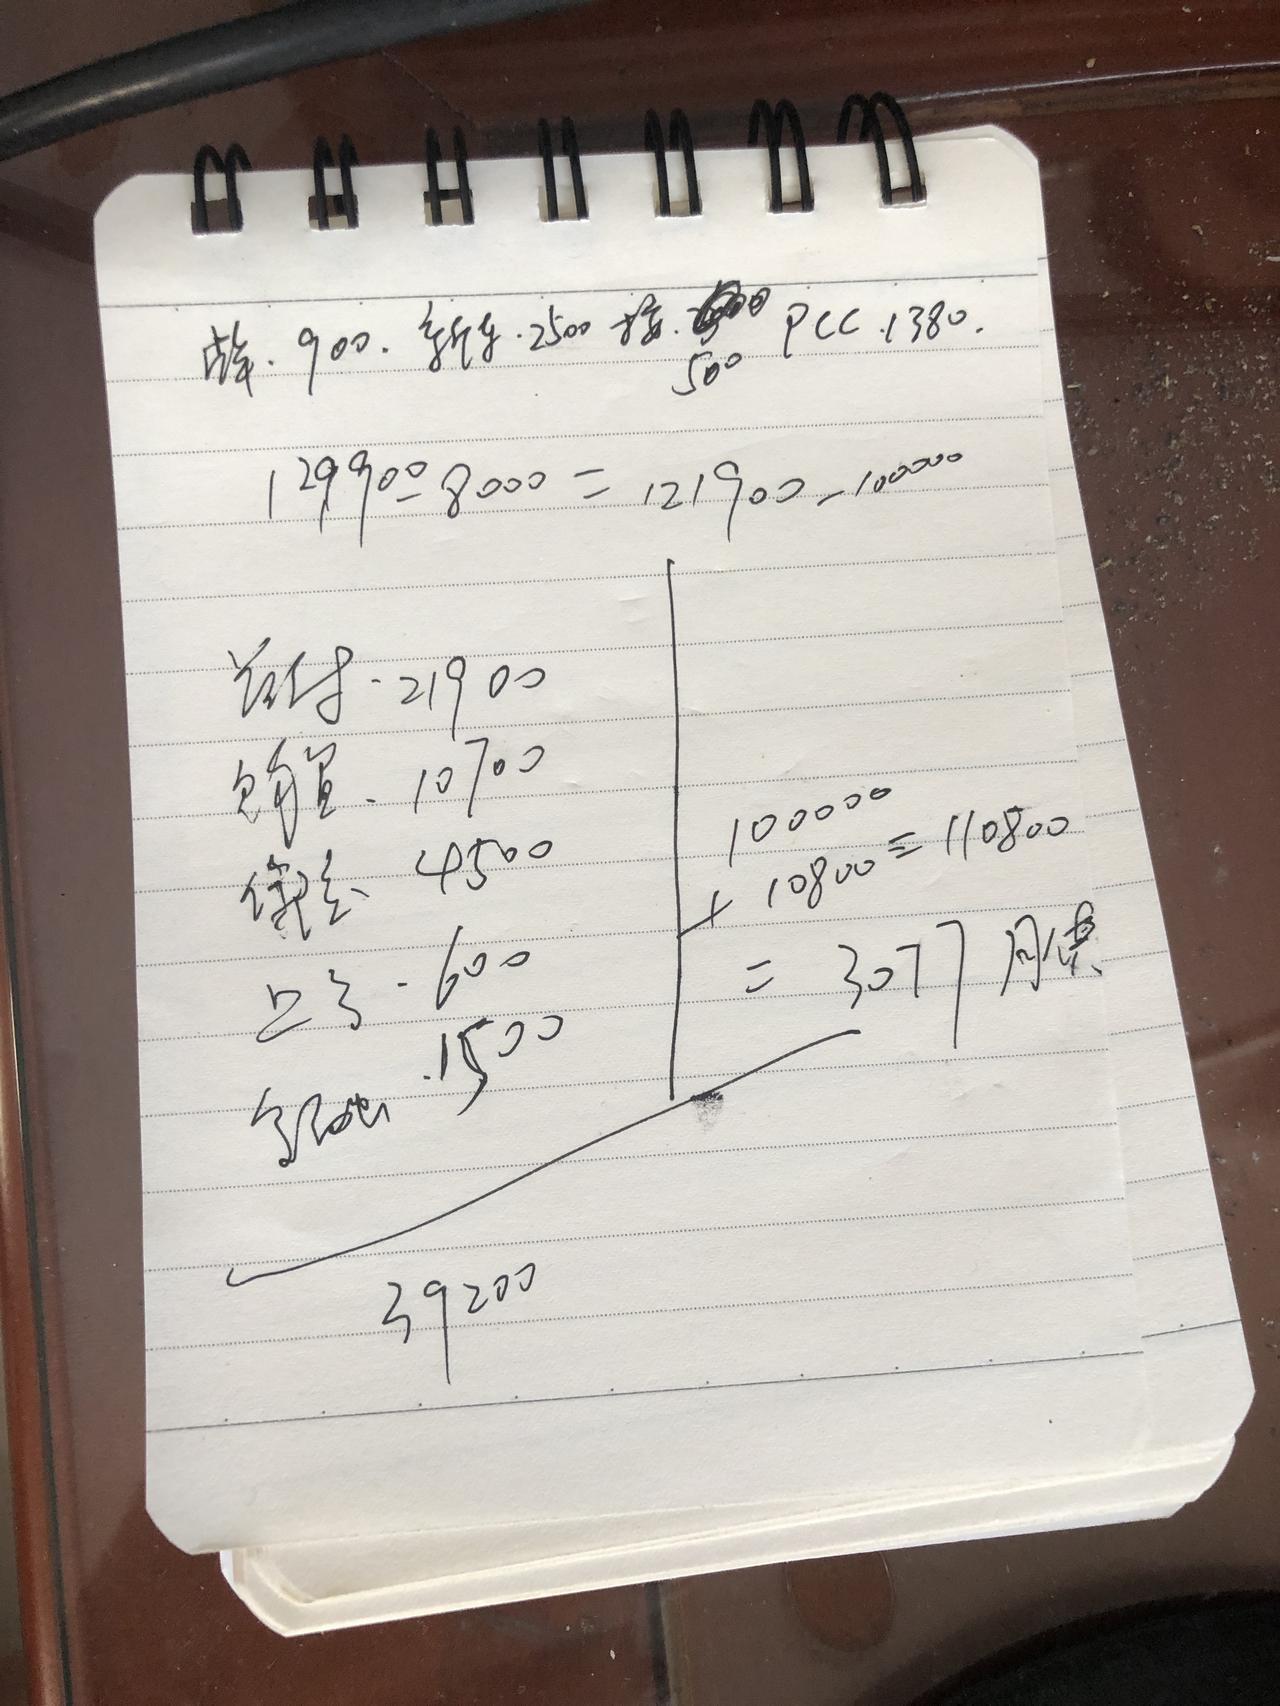 900. 新车.2500 500 PCC.1380.
129900-8000=121900-100000
首付.21900
购置.10700
保险 4500
上牌.600
.1500
39200
100000
+10800=110800
=3077月供